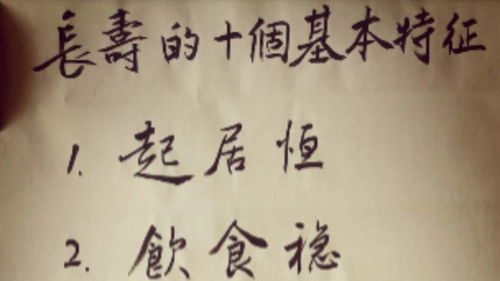 長壽的十個基本特征
1. 起居恒
2. 飲食稳